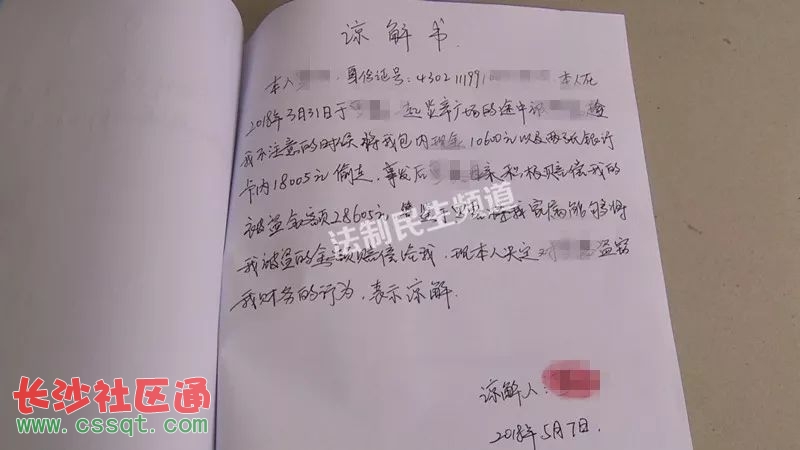 谅解书
本人 身份证号:4302111991 本人在
2018年3月31日于 起坐车广场的途中被 趁
我不注意的时候将我包内现金10600元以及两张银行
卡内18005元偷走,事发后 母亲积极赔偿我的
被盗金额28605元, 鉴于 家属能够将
我被盗的金额赔偿给我,现本人决定对 盗窃
我财务的行为,表示谅解.
谅解人:
2018年5月7日.
法制民生频道
长沙社区通
www.cssqt.com